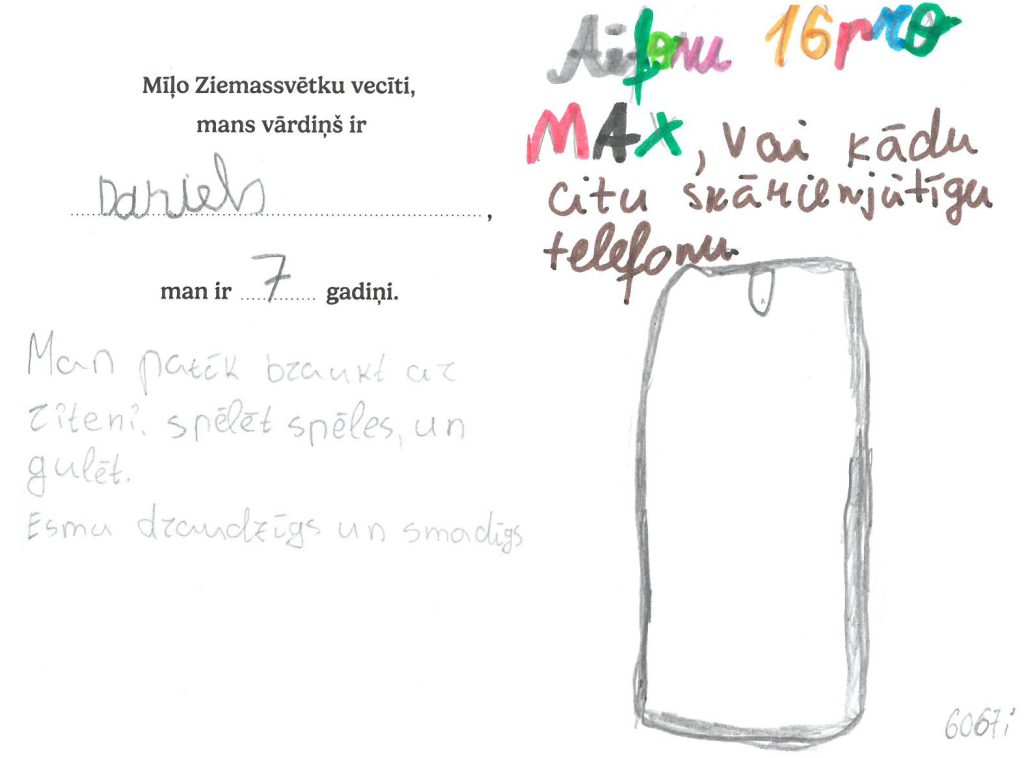 Mīļo Ziemassvētku vecīti,
mans vārdiņš ir
Daniels,
man ir 7 gadiņi.
Man patīk braukt ar
riteni, spēlēt spēles, un
gulēt.
Esmu draudzīgs un smadīgs
Aifonu 16 pro
MAX, vai kādu
citu skārienjūtīgu
telefonu.
6067i